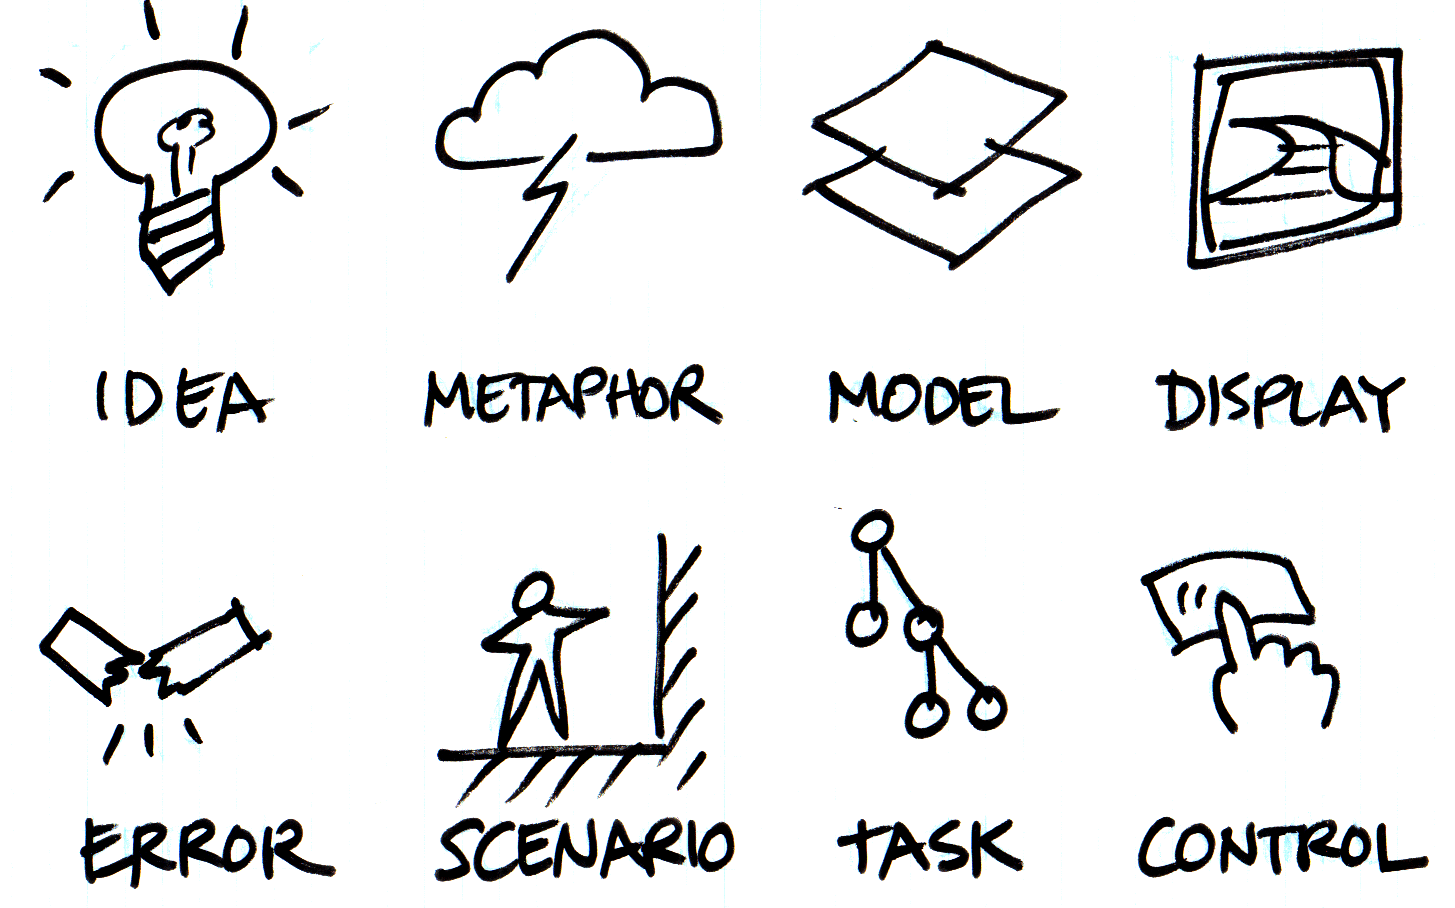 IDEA METAPHOR MODEL DISPLAY
ERROR SCENARIO TASK CONTROL